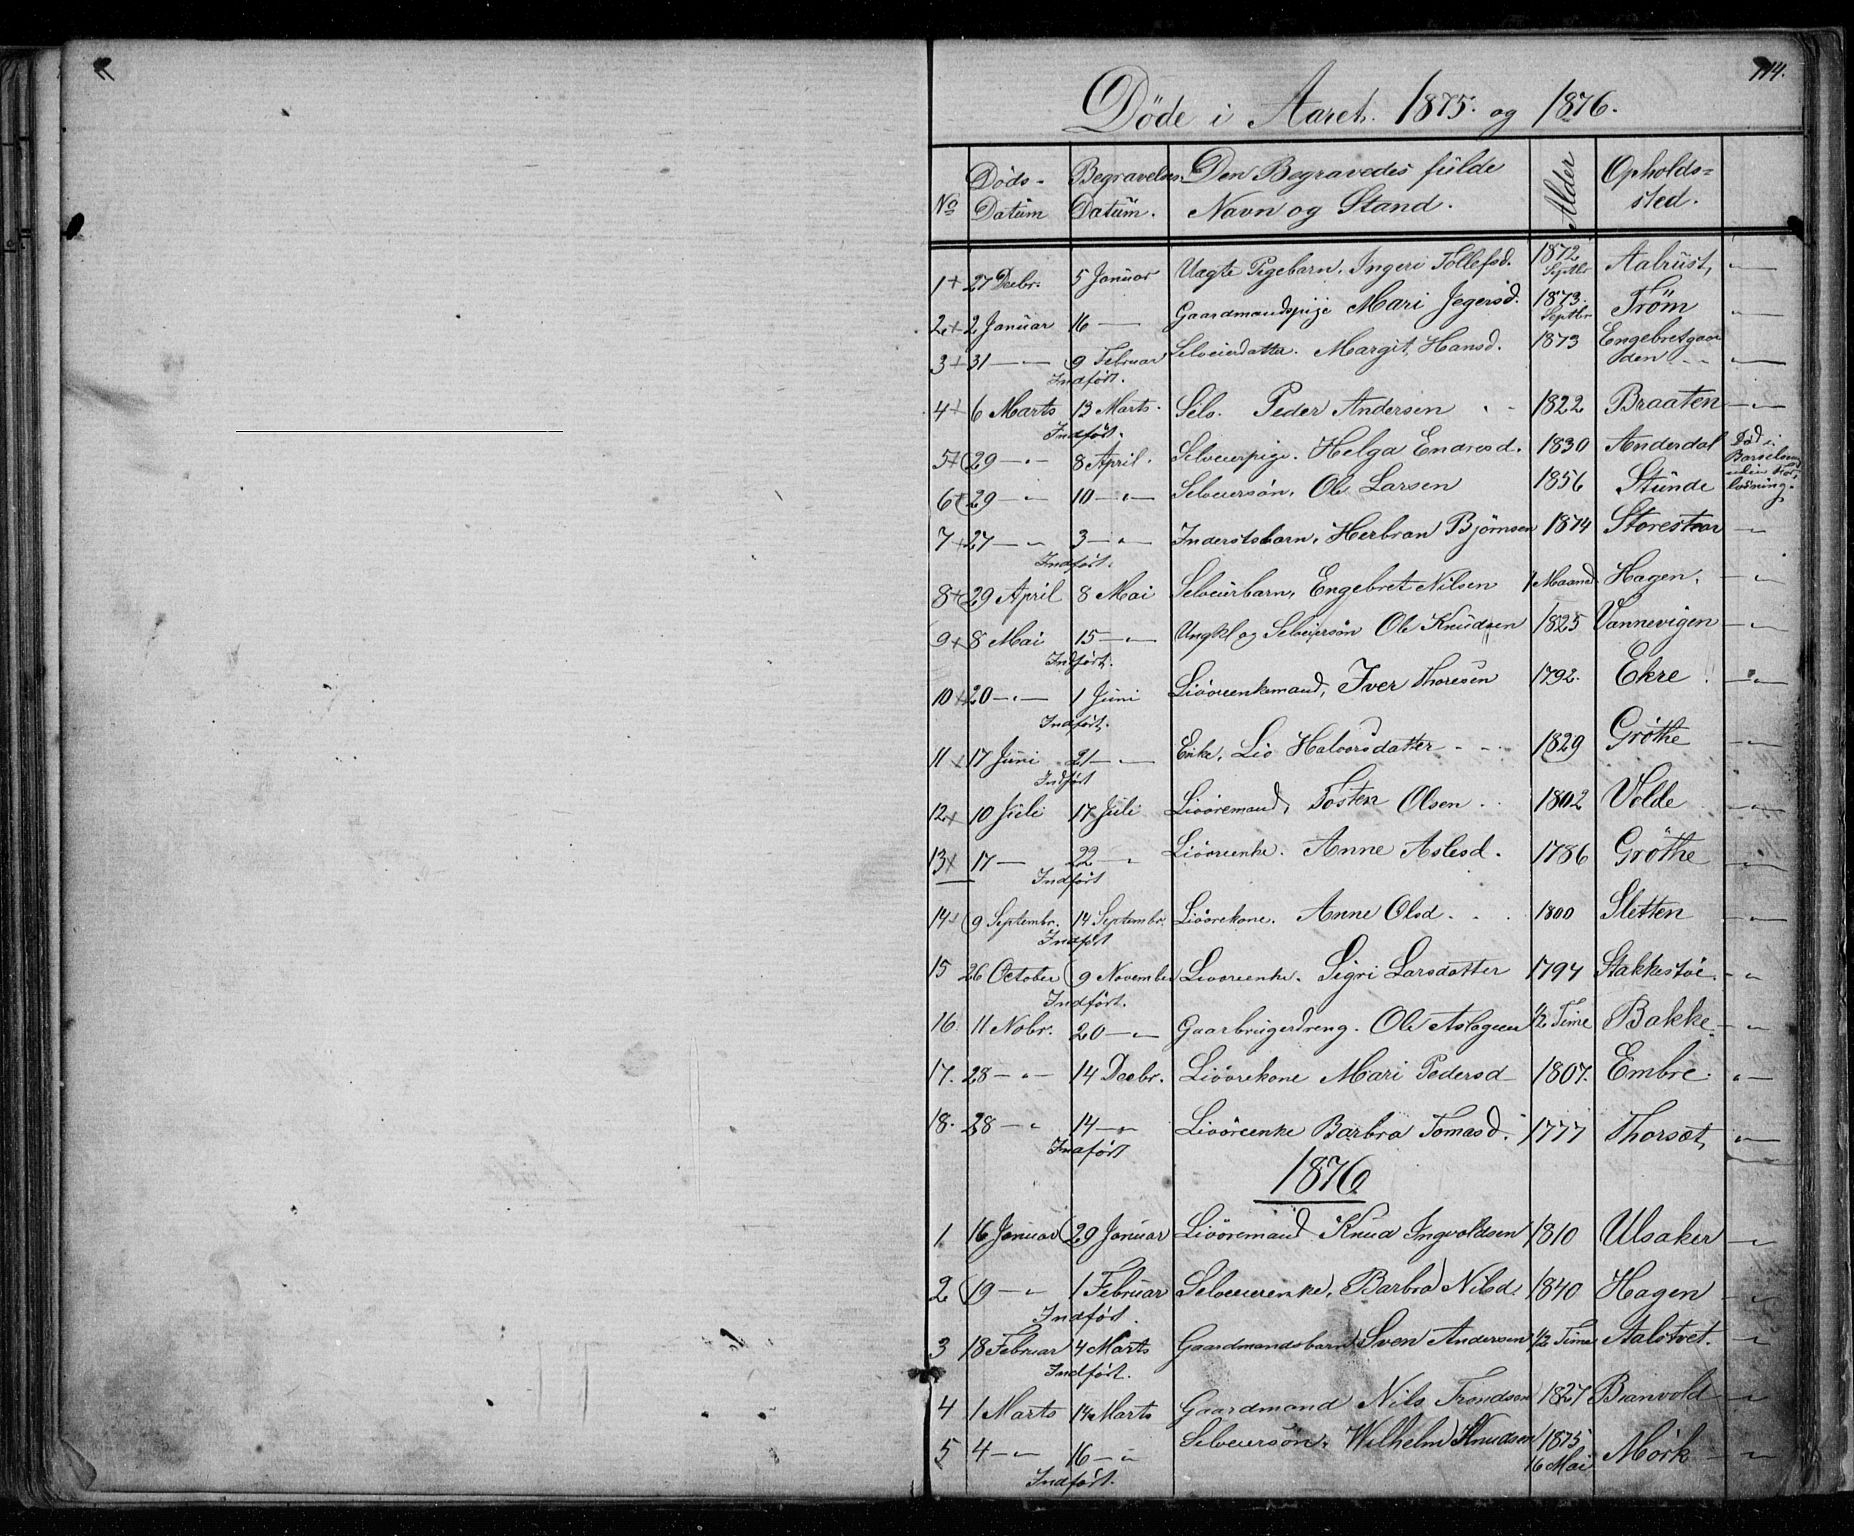 114.
Døde i Aaret. 1875. og 1876.
No Døds-Datum Begravelses Datum. Den Begravedes fulde Navn og Stand. Alder Opholds=sted.
1+ 27 Decbr. 5 Januar Uægte Pigebarn. Ingeri Tollefsd. 1872 Septbr Aalrust,
2+ 2 Januar 16 — Gaardmandspige Mari Jegersd. 1873. Septbr Trøm
3+ 31 — " 9 Februar Selveierdatter. Margit Hansd. 1873 Engebretgaarden
Indført.
4+ 6 Marts 13 Marts. Selv. Peder Andersen 1822 Braaten — " —
Indført.
5+ 29 — " 8 April. Selveierpige. Helga Endresd. 1830 Anderdal Død i Barselseng uden Forløsning.
6+ 29 — " 10 — " — Selveiersøn, Ole Larsen 1856 Stunde
7+ 27 — " 3 — " — Inderstsbarn, Herbran Bjørnsen 1874
Indført.
8+ 29 April 8 Mai Selveierbarn, Engebret Nilsen 1 Maaned Hagen. — "
9+ 8 Mai 15 — " Ungkl og Selveiersøn Ole Knudsen 1825 Vannevigen — " —
Indført.
10+ 20 — " — 1 Juni Iver Thoresen 1792. Ekre. — " —
Indført.
11+ 17 Juni 21 — " — Enke, Liv Halvorsdatter 1829 Grøthe — " —
Indført
12+ 10 Juli 17 Juli Livøremand, Tosten Olsen 1802 Velde — " —
13+ 17 — 22 — " Livøreenke. Anne Aslesd. 1786 Grøthe — " —
Indført
14+ 9 Septembr. 14 Septembr. Livørekone. Anne Olsd. 1800 Sletten — " —
Indført
15 26 October 9 November Livøreenke. Sigri Larsdatter 1794 — "
Indført.
16. 11 Nobr. 20 — " Gaarbrugerdreng. Ole Aslagsen 1/2 Time Bakke. — "
17. 28 — " — 14 Decbr. Livørekone Mari Pedersd 1807. Embre. " —
18. 28 — " 14 — " Livøreenke Barbro Tomasd. 1777 Thorset, " —
Indført
1876
1. 16 Januar 29 Januar Livøremand Knud Ingvoldsen 1810 Ulsaker — "
2 19 — " 1 Februar Selveierenke, Barbro Nilsd. 1840 Hagen — "
Indført.
3 18 Februar 4 Marts Gaardmandsbarn Sven Andersen 1/2 Time — "
Indført.
4 1 Marts 14 Marts Gaardmand Nils Trondsen 1827 Branvold — "
5 4 — " 16 — " Selveiersøn. Wilhelm Knudsen 1875 16 Mai Mørk — "
Indført.